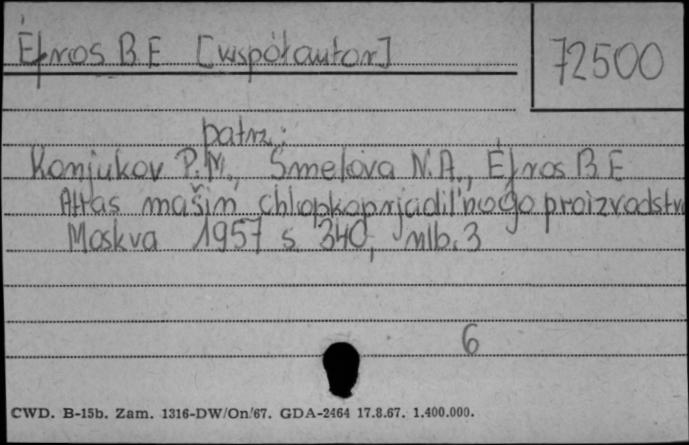 Ėfros B E [współautor]
72500
patrz:
Konjukov P.M., Smelova N.A., Ėfros B E
Atlas mašin chlopkoprjadil'nogo proizvodstv
Moskva 1957 s 340, nlb. 3
6
CWD. B-15b. Zam. 1316-DW/On/67. GDA-2464 17.8.67. 1.400.000.